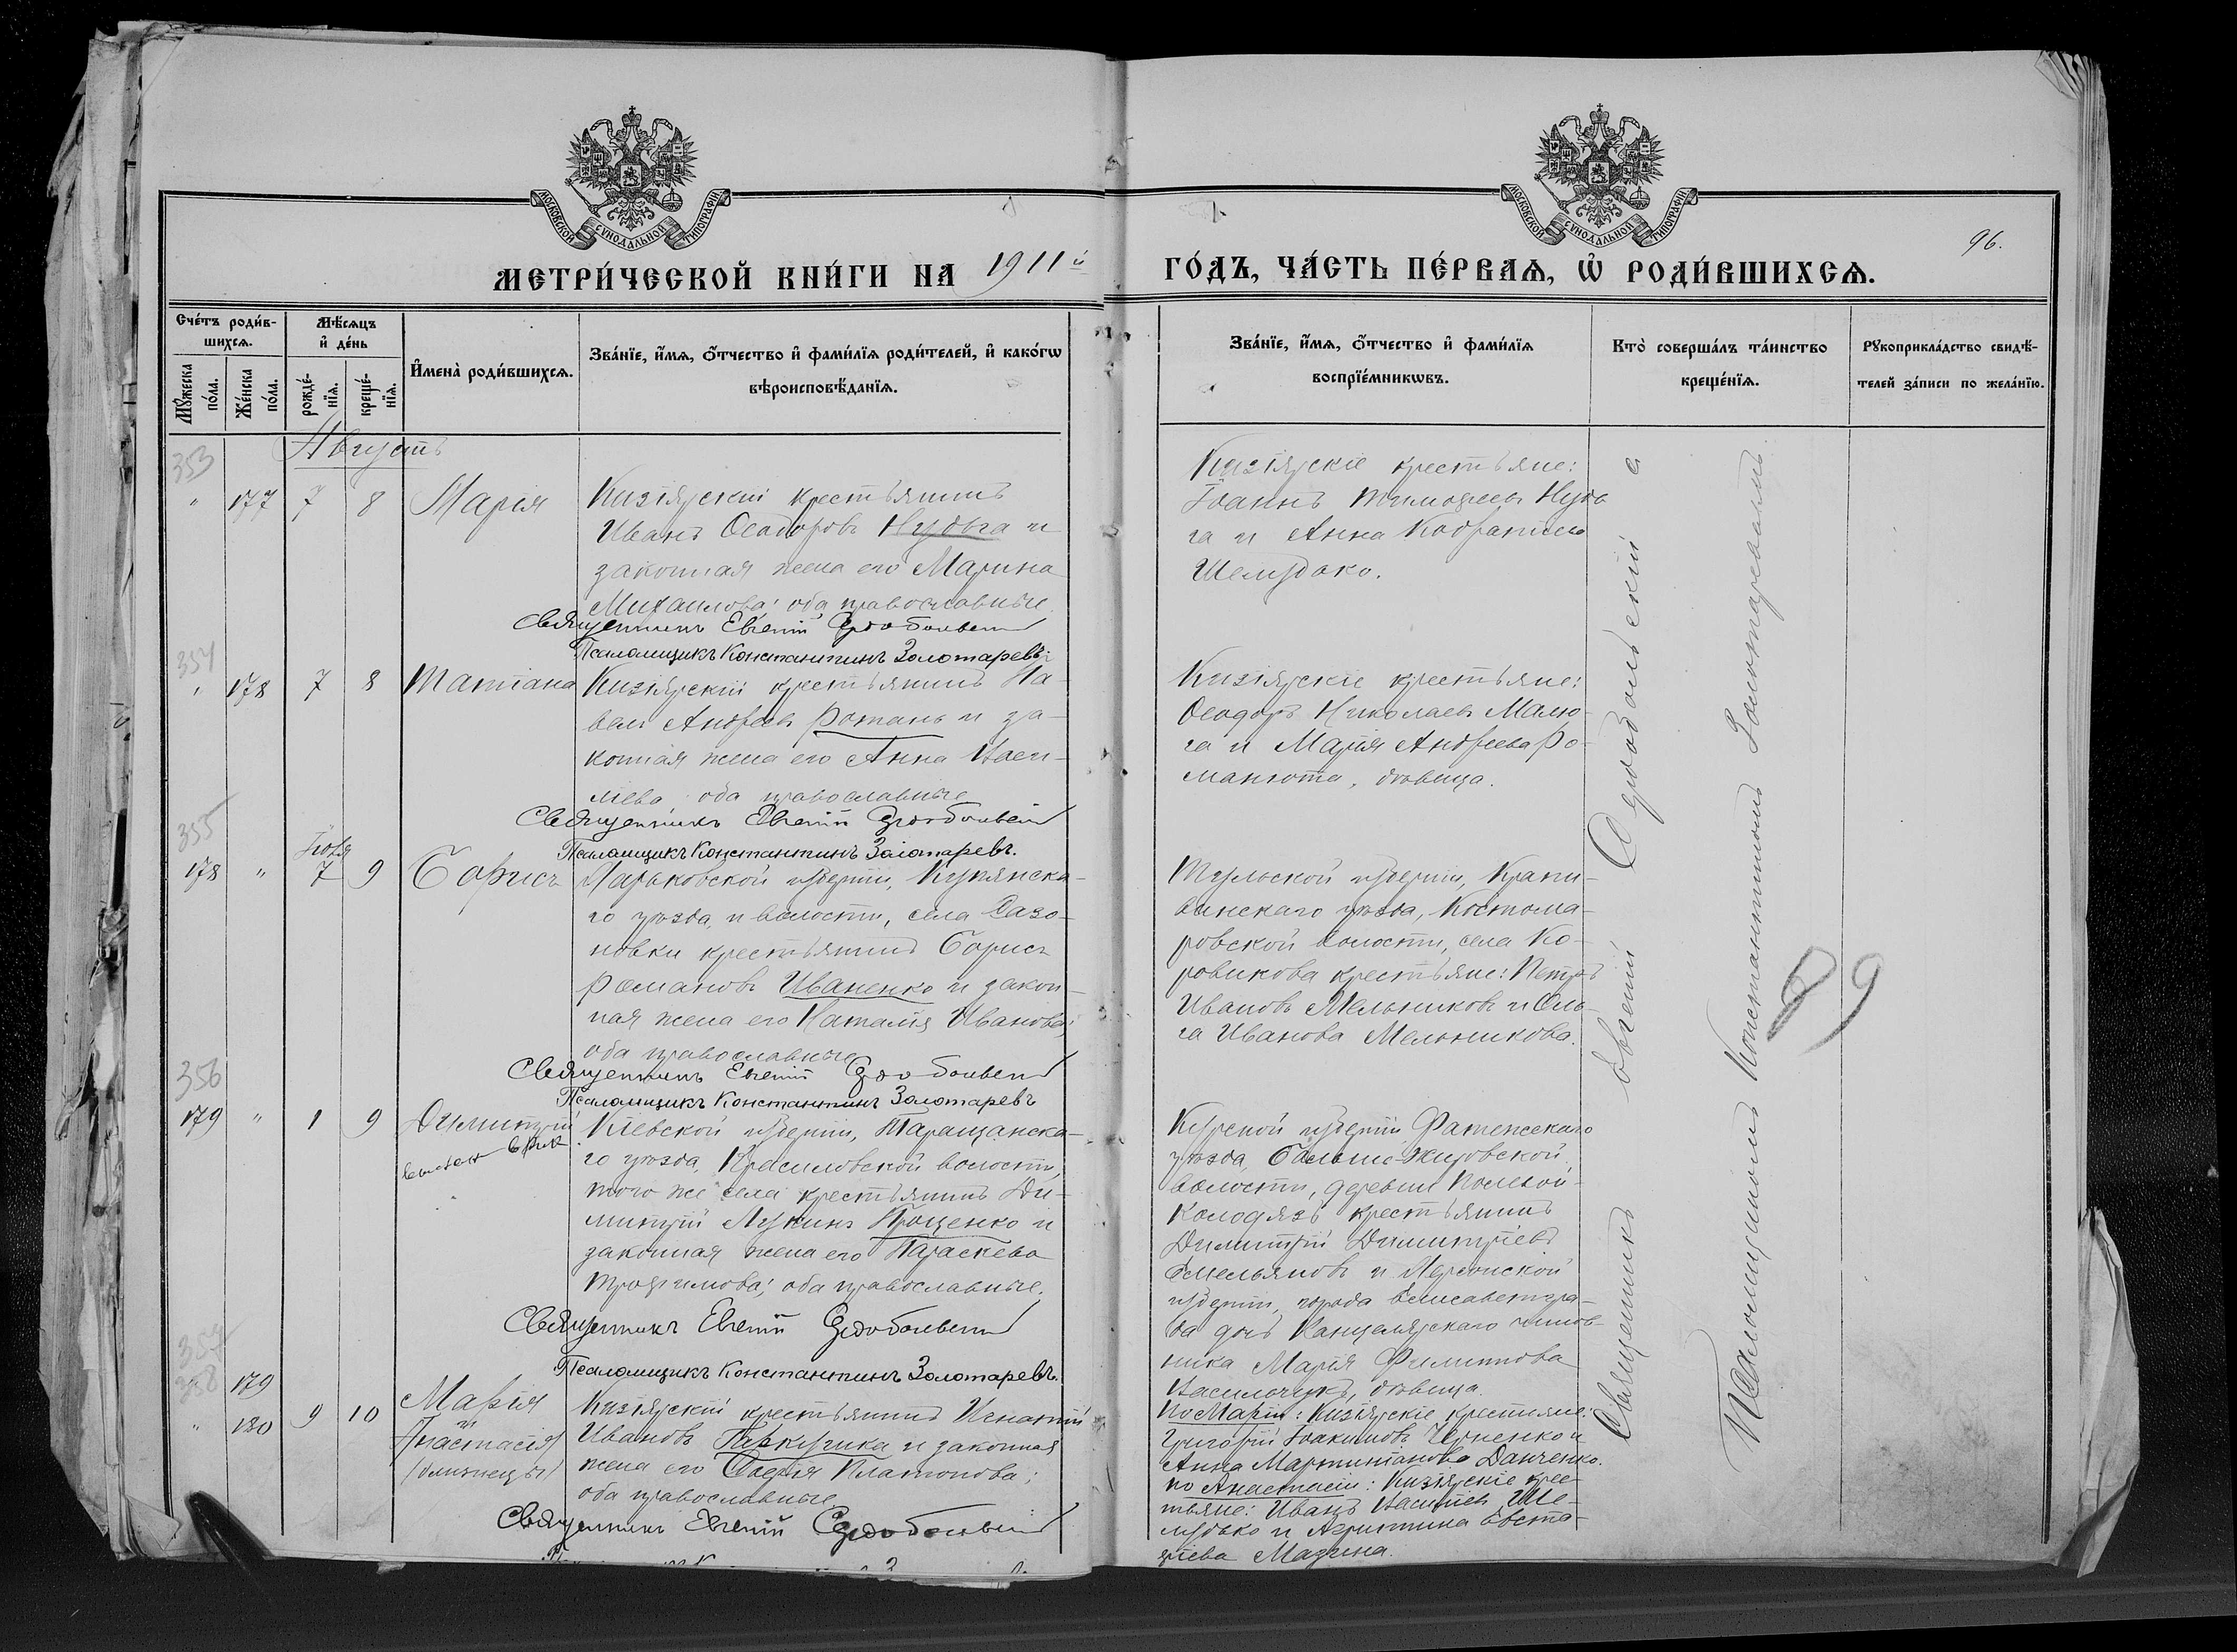 МОСКОВСКОЙ СѴНОДАЛЬНОЙ ТИПОГРАФІИ
МЕТРИ́ЧЕСКОЙ КНИ́ГИ НА 1911й
Сче́тъ роди́в-
шихсѧ.
Мѣ́сѧцъ
и҆ де́нь
Мꙋ́жеска
по́ла.
Же́нска
по́ла.
рожде́-
нїѧ.
креще́-
нїѧ.
И҆мена̀ роди́вшихсѧ.
Зва́нїе, и҆́мѧ, ѻ҆́тчество и҆ фами́лїѧ роди́телей, и҆ како́гѡ
вѣроисповѣ́данїѧ.
Августъ
353
" 177 7 8 Марія
Кизіярскій крестьянинъ
Иванъ Ѳеодоровъ Нудьга и
законная жена его Марина
Михаилова; оба православные.
Священникъ Евгеній
Псаломщикъ Константинъ Золотаревъ.
354
" 178 7 8 Татіана
Кизіярскій крестьянинъ Па-
велъ Андреевъ Романъ и за-
конная жена его Анна Васи-
ліева, оба православные
Священникъ Евгеній
Псаломщикъ Константинъ Золотаревъ.
355
178 " Іюля 7 9 Борисъ
Харьковской губерніи, Купянска-
го уѣзда, и волости, села Сазо-
новки крестьянинъ Борисъ
Романовъ Иваненко и закон-
ная жена его Наталія Иванова;
оба православные
Священникъ Евгеній
Псаломщикъ Константинъ Золотаревъ
356
179 " 1 9 Димитрій
Кіевской губерніи, Таращанска-
го уѣзда, Красиловской волости,
того же села крестьянинъ Ди-
митрій Лукинъ Проценко и
законная жена его Параскева
Трофимова; оба православные.
Священникъ Евгеній
Псаломщикъ Константинъ Золотаревъ.
357
358
179
" 180 9 10
Марія
Анастасія
/близнецы/
Кизіярскій крестьянинъ Игнатій
Ивановъ Гаркушка и законная
жена его Софія Платонова;
оба православные
Священникъ Евгеній
МОСКОВСКОЙ СѴНОДАЛЬНОЙ ТИПОГРАФІИ
96.
ГО́ДЪ, ЧА́СТЬ ПЕ́РВАѦ, Ѡ҆ РОДИ́ВШИХСѦ.
Зва́нїе, и҆́мѧ, ѻ҆́тчество и҆ фами́лїѧ
воспрїе́мникѡвъ.
Кто̀ соверша́лъ та́инство
креще́нїѧ.
Рꙋкоприкла́дство свидѣ́-
телей за́писи по жела́нїю.
Кизіярскіе крестьяне:
Іоаннъ Тимоѳеевъ Нудь
га и Анна Кодратьева
Шелудько.
Кизіярскіе крестьяне:
Ѳеодоръ Николаевъ Малю-
га и Марія Андреева Ро-
манюта, дѣвица.
Тульской губерніи, Крапи-
винскаго уѣзда, Костома-
ровской волости, села Ко-
ровикова крестьяне: Петръ
Ивановъ Мельниковъ и Оль-
га Иванова Мельникова.
Курской губерніи Фатежскаго
уѣзда, Больше-Жировской
волости, деревни Полевой-
Колодязь крестьянинъ
Димитрій Димитріевъ
Емельяновъ и Херсонской
губерніи, города Елисаветгра-
да дочь Канцелярскаго чинов-
ника Марія Филиппова
Васильчукъ, дѣвица.
По Маріи: Кизіярскіе крестьяне:
Григорій Іоакимовъ Черненко и
Анна Мартиніанова Данченко.
по Анастасіи: Кизіярскіе крес-
тьяне: Иванъ Васильевъ Ше-
лудько и Агриппина Евста-
фіева Мазина.
Священникъ Евгеній
Псаломщикомъ Константиномъ Золотаревымъ
89